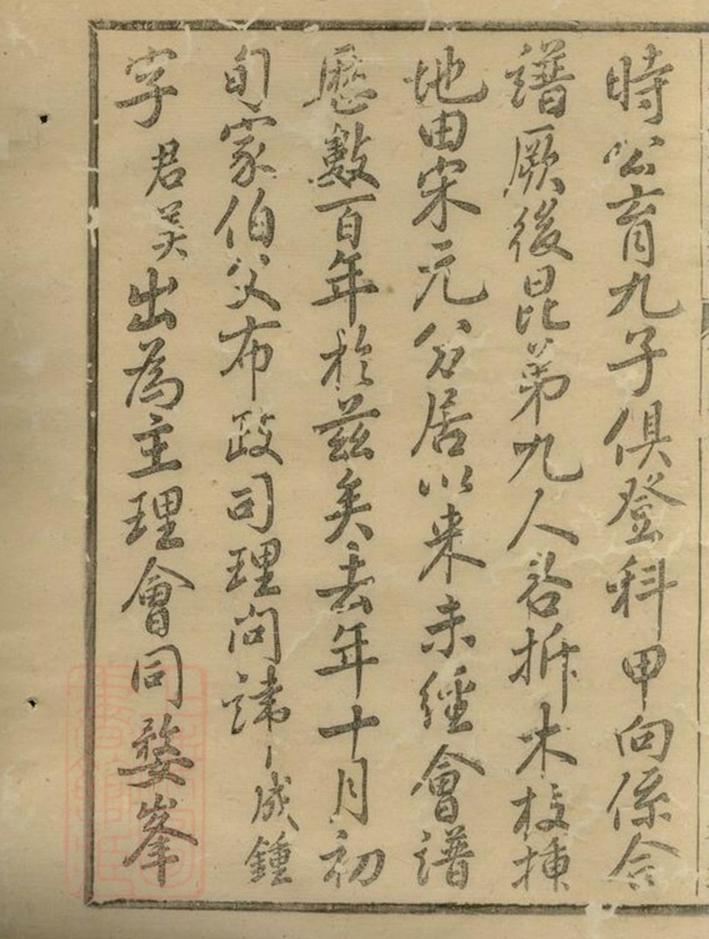 時公育九子俱登科甲向係合
譜厥後昆弟九人各拆木枝揀
地由宋元分居以来未經會譜
歷數百年於兹矣去年十月初
旬家伯父布政司理问諱成鍾
字君美出為主理會同婺峯